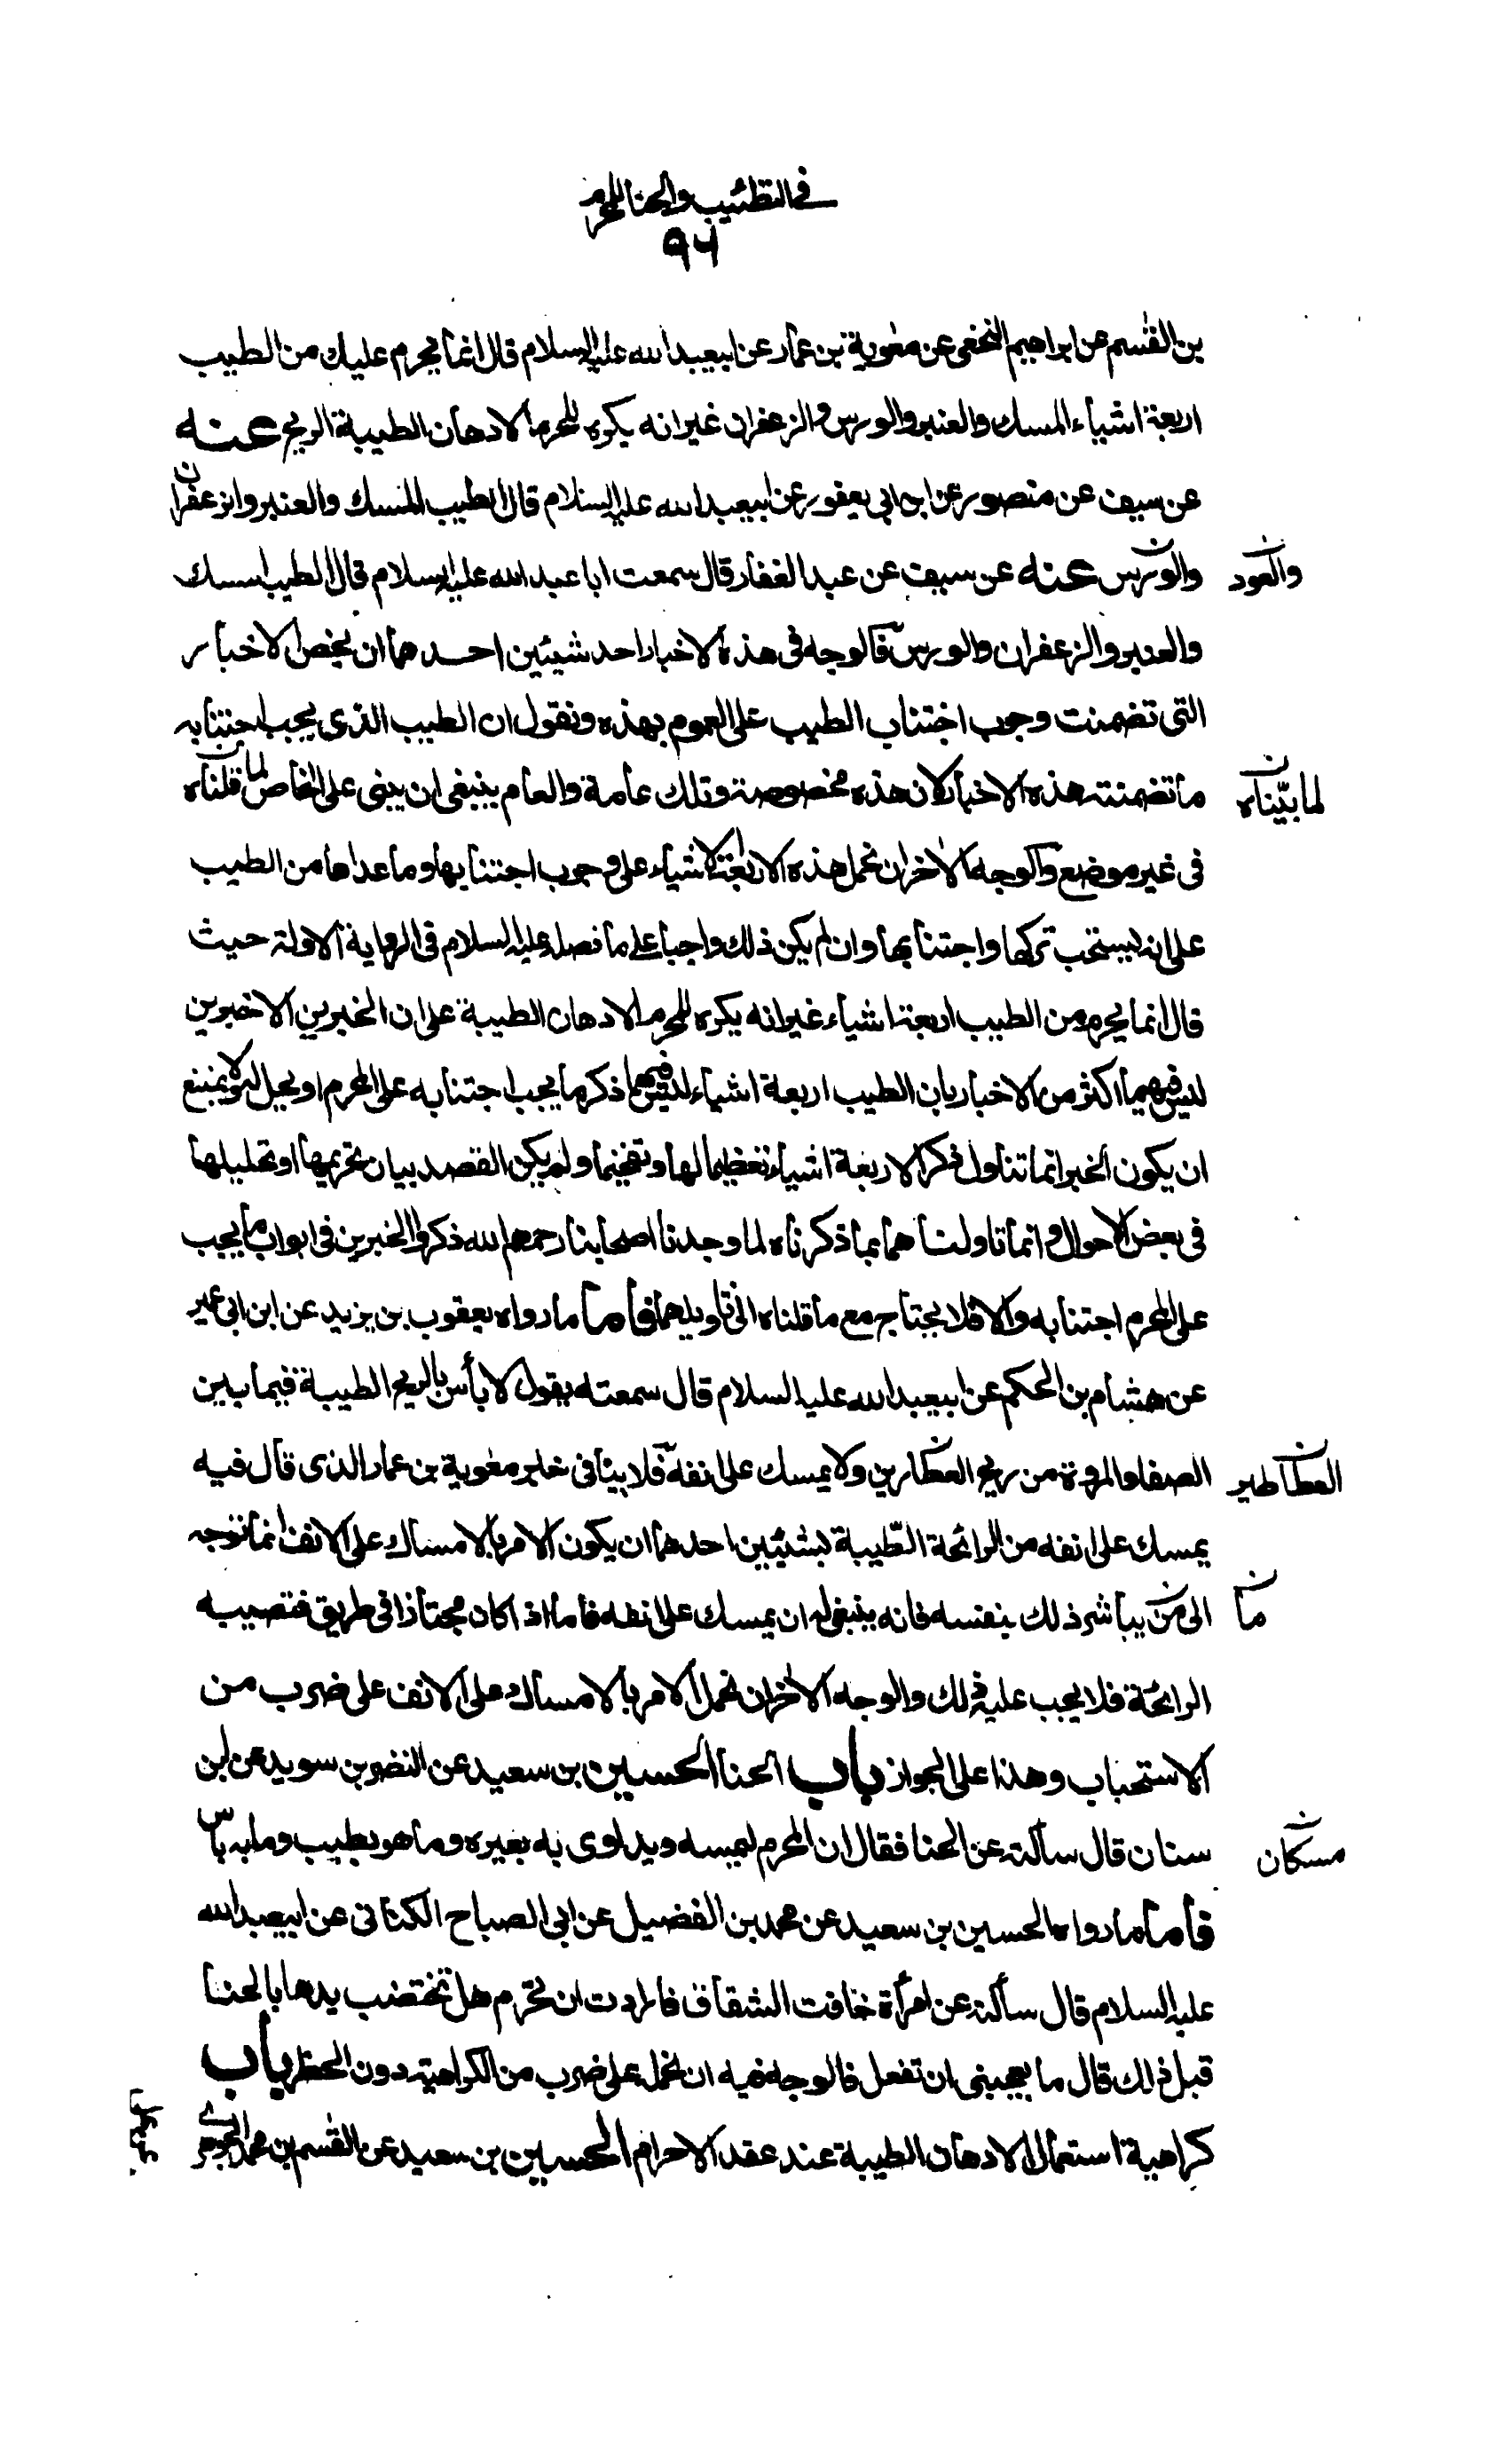 في التطيب والحنا للمحرم
٩٦
بن القسم عن ابراهيم النخعى عن معوية بن عمار عن ابيعبد الله عليه السلام قال انما يحرم عليك من الطيب
اربعة اشياء المسك والعنبر والورس والزعفران غير انه يكره للمحرم الادهان الطيبة الريح عنه
عن سيف عن منصور عن ابن ابى يعفور عن ابيعبد الله عليه السلام قال الطيب المسك والعنبر والزعفران
والورس عنه عن سيف عن عبد الغفار قال سمعت ابا عبد الله عليه السلام قال الطيب المسك
والعود
والعنبر والزعفران والورس فالوجه فى هذه الاخبار احد شيئين احدهما ان يخص الاخبار
التى تضمنت وجوب اجتناب الطيب على العموم بهذه ونقول ان الطيب الذى يجب اجتنابه
ما تضمنته هذه الاخبار لان هذه مخصوصة وتلك عامة والعام ينبغى ان يبنى على الخاص لما قلناه
لما بيّناه
فى غير موضع والوجه الاخر ان نحمل هذه الاربعة الاشياء على وجوب اجتنابها وما عداها من الطيب
على انه يستحب تركها واجتنابها وان لم يكن ذلك واجبا على ما فصله عليه السلام فى الرواية الاولة حيث
قال انما يحرم من الطيب اربعة اشياء غير انه يكره للمحرم الادهان الطيبة على ان الخبرين الاخيرين
ليس فيهما اكثر من الاخبار بان الطيب اربعة اشياء ليس فيهما ذكر ما يجب اجتنابه على المحرم او يحل له ولا يمتنع
ان يكون الخبر انما تناول ذكر الاربعة اشياء تعظيما لها وتفخيما ولم يكن القصد بيان تحريمها او تحليلها
فى بعض الاحوال وانما تاولناهما بما ذكرناه لما وجدنا اصحابنا رحمهم الله ذكروا الخبرين فى ابواب ما يجب
على المحرم اجتنابه والا فلا يحتاج مع ما قلناه الى تاويلهما فاما ما رواه يعقوب بن يزيد عن ابن ابى عمير
عن هشام بن الحكم عن ابيعبد الله عليه السلام قال سمعته يقول لا بأس بالريح الطيبة فيما بين
الصفا والمروة من ريح العطارين ولا يمسك على انفه فلا ينافى خبر معوية بن عمار الذى قال فيه
العطاطير
يمسك على انفه من الرائحة الطّيبة لشيئين احدهما ان يكون الامر بالامساك على الانف انما توجه
الى من يباشر ذلك بنفسه فانه ينبغى له ان يمسك على انفه فاما اذا كان مجتازا فى طريق فتصيبه
ما
الرائحة فلا يجب عليه ذلك والوجه الاخر ان نحمل الامر بالامساك على الانف على ضرب من
الاستحباب وهذا على الجواز باب الحنا الحسين بن سعيد عن النضر بن سويد عن ابن
سنان قال سألته عن الحنا فقال ان المحرم ليمسه ويداوى به بعيره وما هو بطيب وما به بأس
مسكان
فاما ما رواه الحسين بن سعيد عن محمد بن الفضيل عن ابى الصباح الكنانى عن ابيعبد الله
عليه السلام قال سألته عن امرأة خافت الشقاق فارادت ان تحرم هل تختضب يدها بالحنا
قبل ذلك قال ما يعجبنى ان تفعل فالوجه فيه ان نحمله على ضرب من الكراهية دون الحظر باب
كراهية استعمال الادهان الطيبة عند عقد الاحرام الحسين بن سعيد عن القسم بن محمد الجوهرى